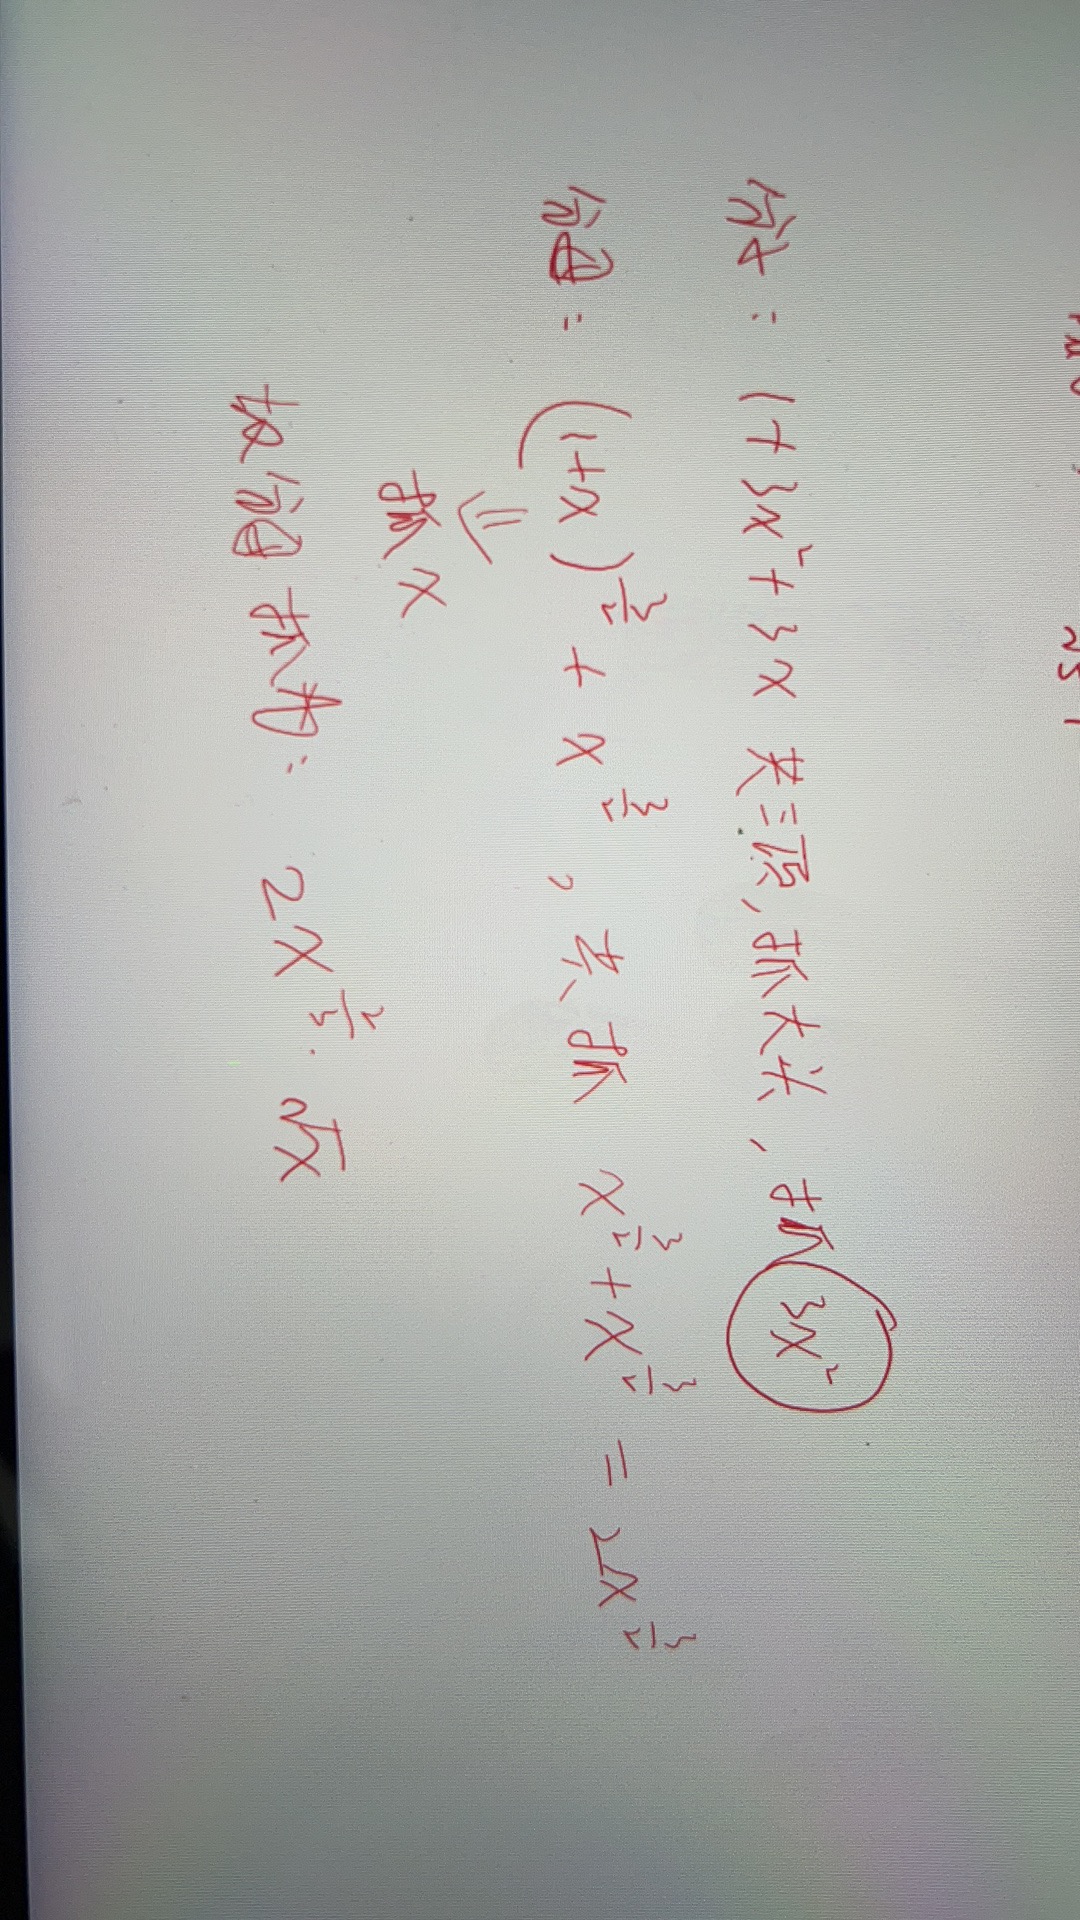 分子: 1+3x²+3x 共三项,抓大头,抓 3x²
分母: (1+x)^{3/2} + x^{3/2} , 去抓 x^{3/2}+x^{3/2} = 2x^{3/2}
⇓
抓 x
故分母抓为: 2x^{2/3}·√x